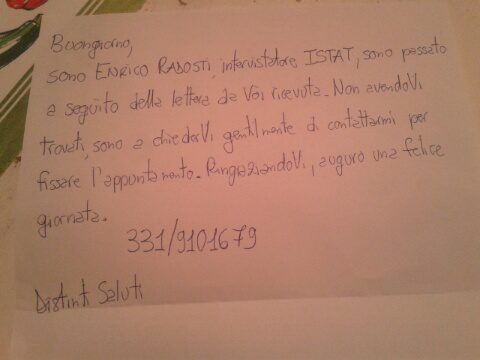 Buongiorno,
sono ENRICO RADOSTI, intervistatore ISTAT, sono passato
a seguito della lettera da Voi ricevuta. Non avendoVi
trovati, sono a chiederVi gentilmente di contattarmi per
fissare l'appuntamento. RingraziandoVi, auguro una felice
giornata.
331/9101679
Distinti Saluti